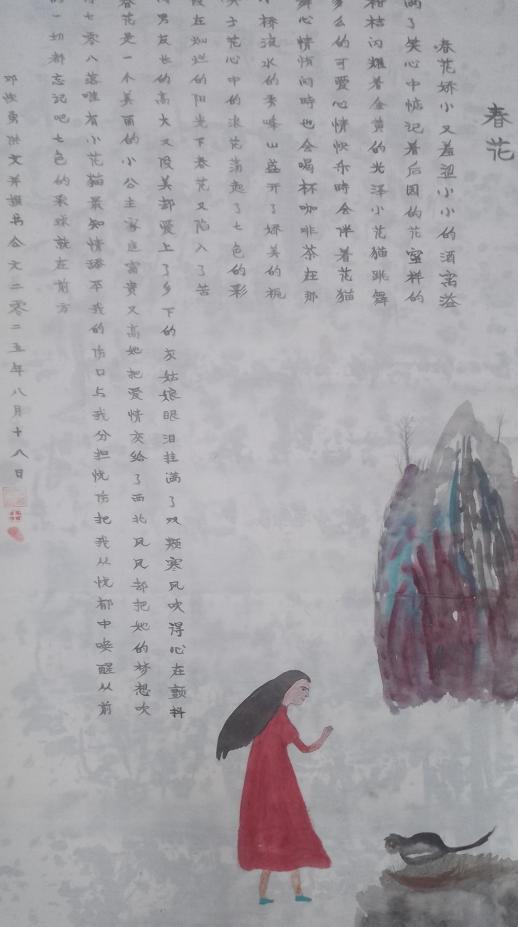 春花
春花娇小又羞涩小小的酒窝溢
满了笑心中惦记着后园的花蜜样的
柑桔闪耀着金黄的光泽小花猫跳舞
多么的可爱心情快乐时会伴着花猫
舞心情忧闷时也会喝杯咖啡茶在那
小桥流水的秀峰山盛开了娇美的桃
花心中的浪花荡起了七色的彩
在灿烂的阳光下春花又陷入了苦
男友长的高大又很美却爱上了乡下的灰姑娘眼泪挂满了双颊寒风吹得心在颤抖
春花是一个美丽的小公主家庭富贵又高她把爱情交给了西北风风却把她的梦想吹
七零八落唯有小花猫最知情舔不我的伤口与我分担忧伤把我从忧郁中唤醒从前
的一切都忘记吧七色的彩球就在前方
文并撰书合文二零二五年八月十八日